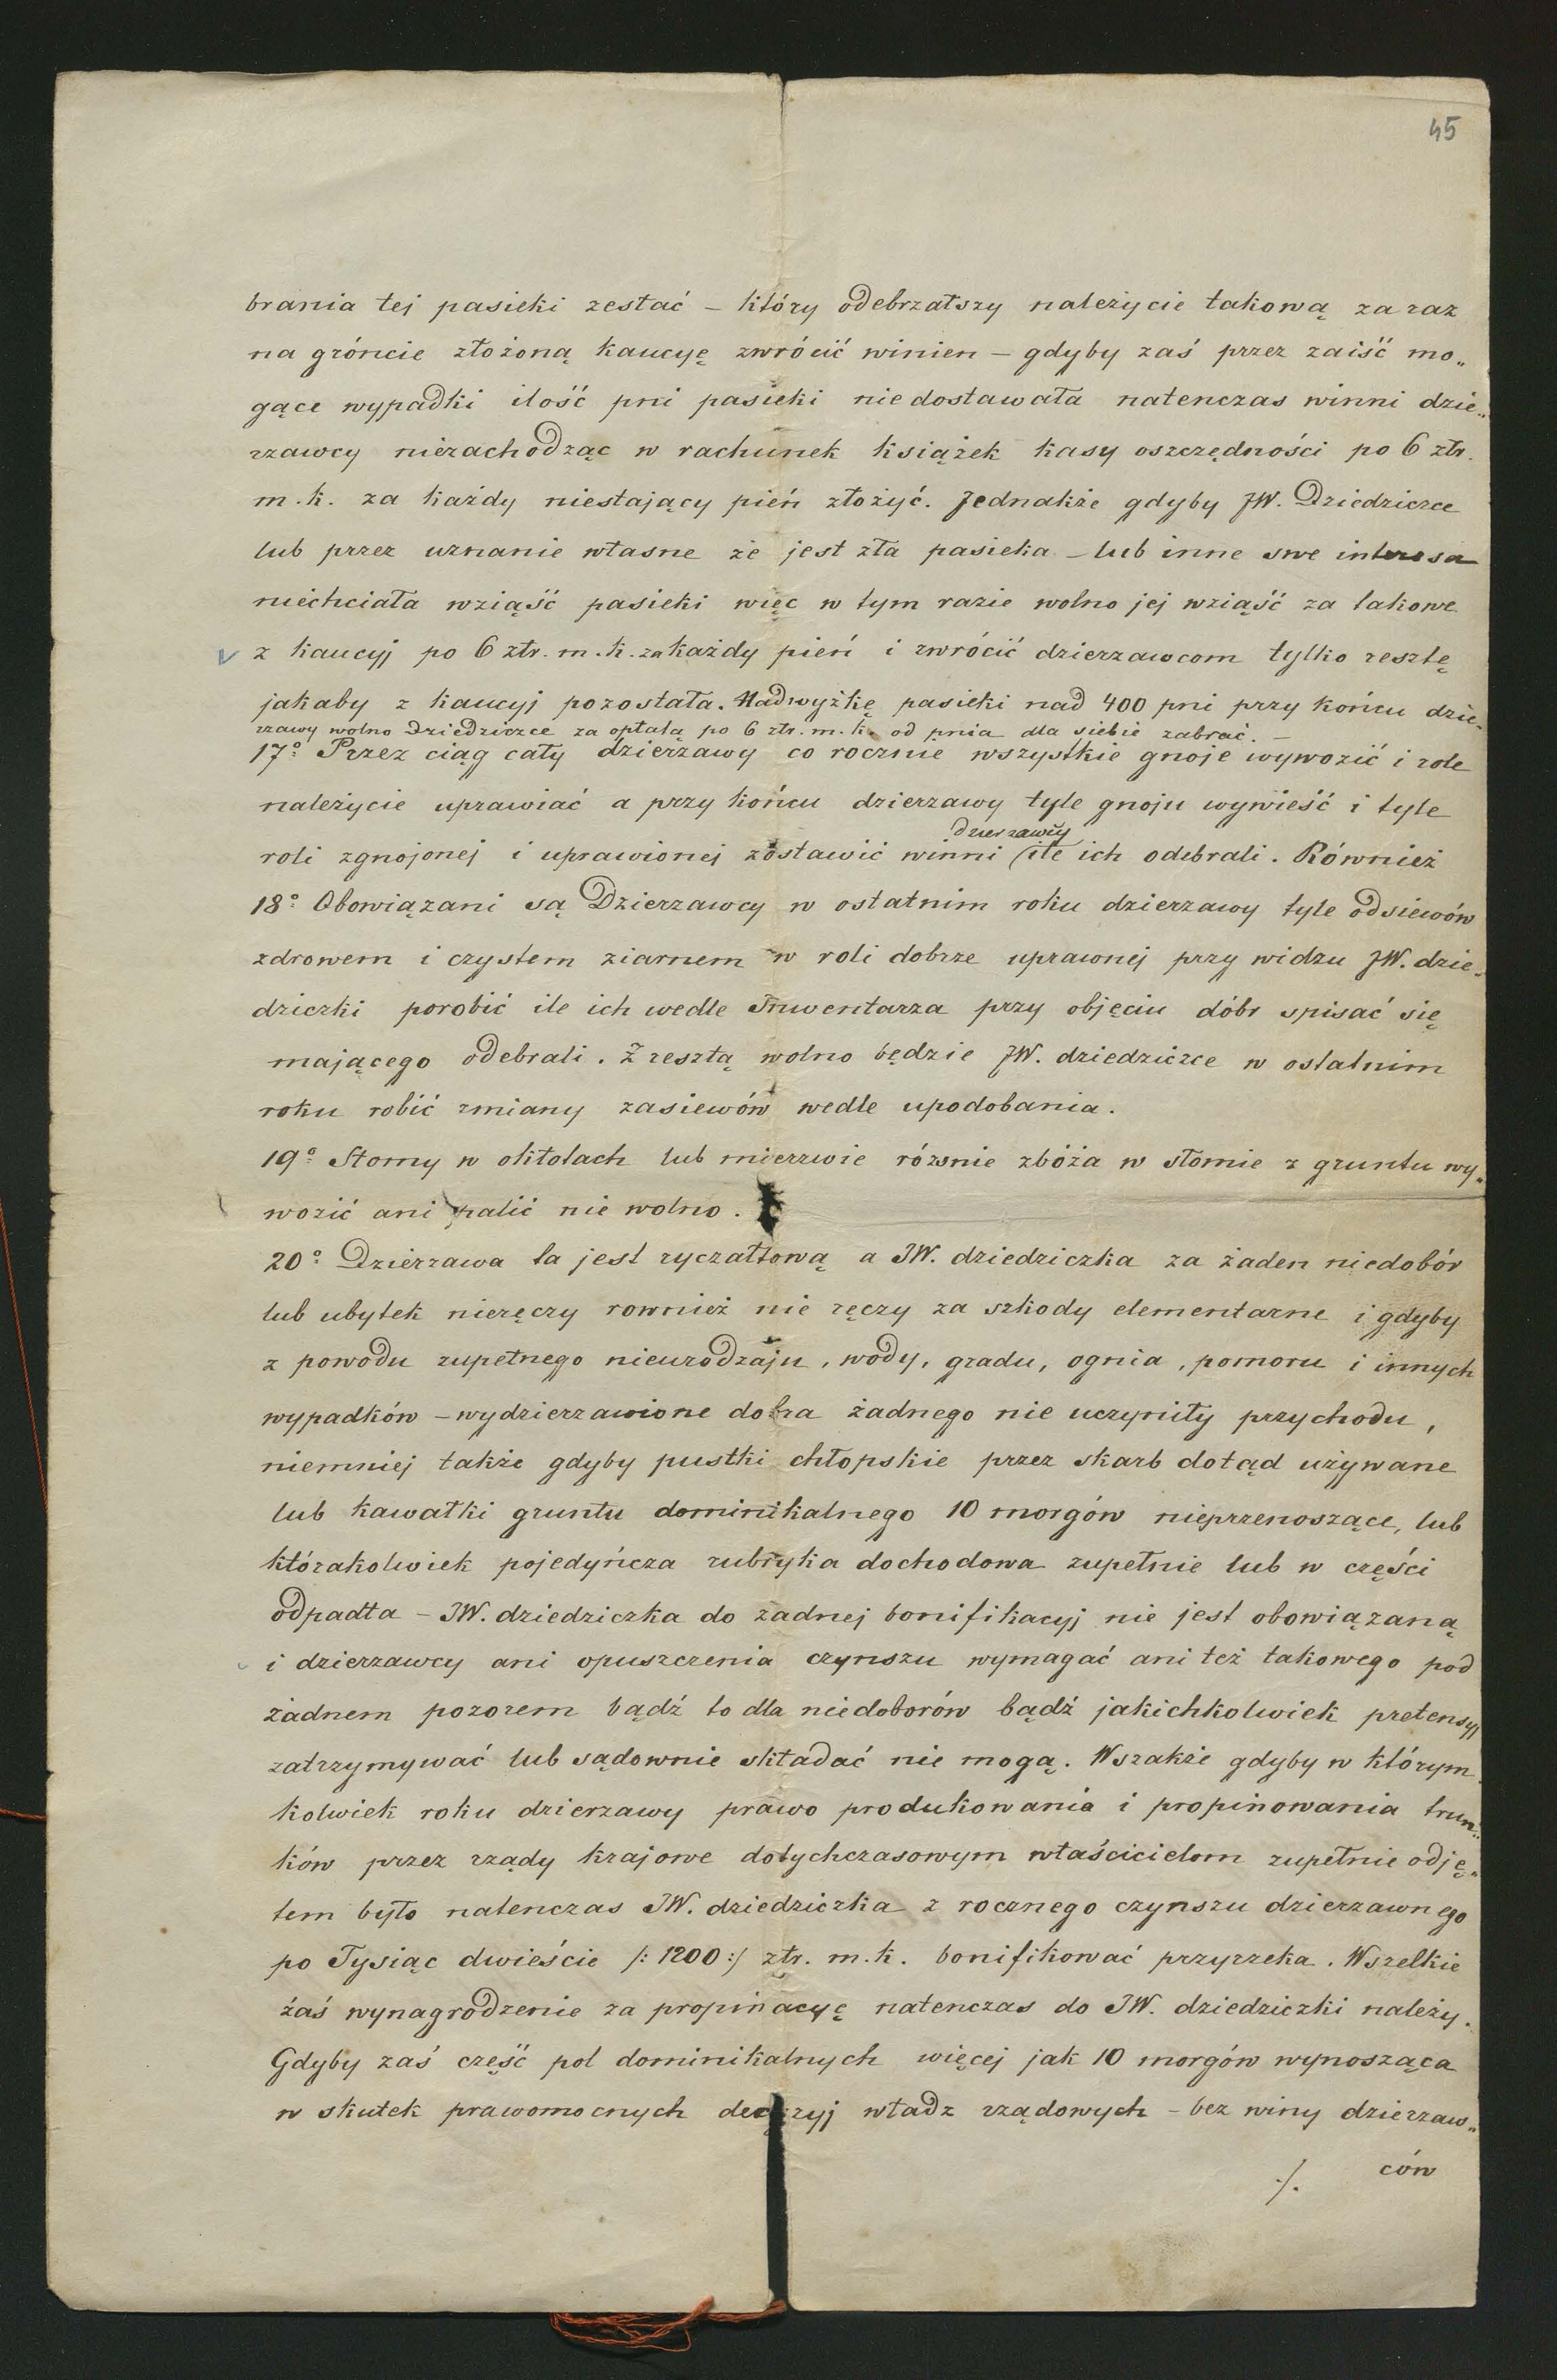 45
brania tej pasieki zesłać – który odebrzałszy należycie takową za raz
na gróncie złożoną kaucyę zwrócić winien – gdyby zaś przez zaiść mo„
gące wypadki ilość pni pasieki niedostawała natenczas winni dzie„
rzawcy niezachodząc w rachunek książek kasy oszczędności po 6 złr.
m. k. za każdy niestający pień złożyć. Jednakże gdyby JW. Dziedziczce
lub przez uznanie własne że jest zła pasieka – lub inne swe interesa
niechciała wziąść pasieki więc w tym razie wolno jej wziąść za takowe
z kaucyj po 6 złr. m. k. za każdy pień i zwrócić dzierzawcom tylko resztę
jakaby z kaucyj pozostała. Nadwyżkę pasieki nad 400 pni przy końcu dzie„
rzawy wolno Dziedziczce za opłatą po 6 złr. m. k. od pnia dla siebie zabrać. –
17° Przez ciąg cały dzierzawy co rocznie wszystkie gnoje wywozić i role
należycie uprawiać a przy końcu dzierzawy tyle gnoju wywieść i tyle
dzierzawcy
roli zgnojonej i uprawionej zostawić winni ( ile ich odebrali. Również
18° Obowiązani są Dzierzawcy w ostatnim roku dzierzawy tyle odsiewów
zdrowem i czystem ziarnem w roli dobrze uprawnej przy widzu JW. dzie„
dziczki porobić ile ich wedle Inwentarza przy objęciu dóbr spisać się
mającego odebrali. Zresztą wolno będzie JW. dziedziczce w ostatnim
roku robić zmiany zasiewów wedle upodobania.
19° Słomy w okłotach lub mierzwie równie zbóża w słomie z gruntu wy„
wozić ani palić nie wolno.
20° Dzierzawa ta jest ryczałtową a JW. dziedziczka za żaden niedobór
lub ubytek nieręczy rownież nie ręczy za szkody elementarne i gdyby
z powodu zupełnego nieurodzaju, wody, gradu, ognia, pomoru i innych
wypadków – wydzierzawione dobra żadnego nie uczyniły przychodu,
niemniej także gdyby pustki chłopskie przez skarb dotąd używane
lub kawałki gruntu dominikalnego 10 morgów nieprzenoszące, lub
którakolwiek pojedyńcza rubryka dochodowa zupełnie lub w części
odpadła – JW. dziedziczka do żadnej bonifikacyj nie jest obowiązaną
i dzierzawcy ani opuszczenia czynszu wymagać ani też takowego pod
żadnem pozorem bądź to dla niedoborów bądź jakichkolwiek pretensyj
zatrzymywać lub sądownie składać nie mogą. Wszakże gdyby w którym
kolwiek roku dzierzawy prawo produkowania i propinowania trun„
ków przez rządy krajowe dotychczasowym właścicielom zupełnie odję„
tem było natenczas JW. dziedziczka z rocznego czynszu dzierzawnego
po Tysiąc dwieście /: 1200 :/ złr. m. k. bonifikować przyrzeka. Wszelkie
zaś wynagrodzenie za propinacyę natenczas do JW. dziedziczki należy.
Gdyby zaś część pol dominikalnych więcej jak 10 morgów wynosząca
w skutek prawomocnych decyzyj władz rządowych – bez winy dzierzaw„
./. ców